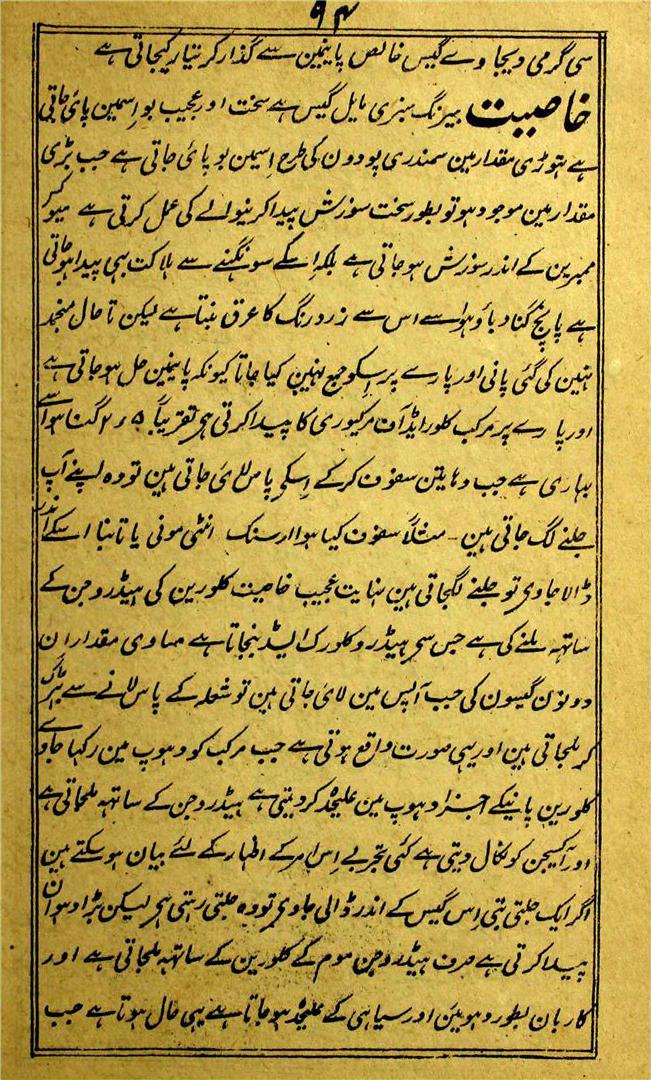 ۹۴
سی گرمی دیجاوے گیس خالص پانیمین سے گذار کر تیار کیجاتی ہے
خاصیت یہرنگ سبزی مایل گیس ہے سخت اور عجیب بو اسمین پائی جاتی
ہے تہوڑی مقدار مین سمندری پودون کی طرح اسمین بو پائی جاتی ہے جب بڑی
مقدار مین موجود ہو تو بطور سخت سوزش پیدا کرنیوالے کی عمل کرتی ہے میوکر
ممبرین کے اندر سوزش ہو جاتی ہے بلکہ اسکے سونگنے سے ہلاکت بہی پیدا ہو جاتی
ہے پانچ گنا دباؤ ہوا سے اس سے زرد رنگ کا عرق بنتا ہے لیکن تاحال منجمد
نہین کی گئی پانی اور پارے پر اسکو جمع نہین کیا جاتا کیونکہ پانیمین حل ہو جاتی ہے
اور پارے پر مرکب کلورایڈ آف مرکیوری کا پیدا کرتی ہی تقریباً ۲٫۵ گنا ہوا سے
بہاری ہے جب دہاتین سفوف کرکے اسکی پاس لائی جاتی ہین تو وہ اپنے آپ
جلنے لگ جاتی ہین ۔ مثلاً سفوف کیا ہوا ارسنک انٹی مونی یا تانبا اسکے اندر
ڈالا جاوی تو جلنے لگجاتی ہین نہایت عجیب خاصیت کلورین کی ہیڈروجن کے
ساتہہ ملنے کی ہے جس سی ہیڈروکلورک ایسڈ بنجاتا ہے مساوی مقدار ان
دونون گیسون کی جب آپس مین لائی جاتی ہین تو شعلہ کے پاس لانے سے بہڑک
کر ملجاتی ہین اور یہی صورت واقع ہوتی ہے جب مرکب کو دہوپ مین رکہا جاوے
کلورین پانیکے اجزا دہوپ مین علیحدہ کردیتی ہے ہیڈروجن کے ساتہہ ملجاتی ہے
اور آکسیجن کو نکال دیتی ہے کئی تجربے اس امر کے اظہار کے لئے بیان ہو سکتے ہین
اگر ایک جلتی بتی اس گیس کے اندر ڈالی جاوی تو وہ جلتی رہتی ہی لیکن بڑا دہوان
پیدا کرتی ہے صرف ہیڈروجن موم کے کلورین کے ساتہہ ملجاتی ہے اور
کاربان بطور دہوین اور سیاہی کے علیحدہ ہو جاتا ہے یہی حال ہوتا ہے جب